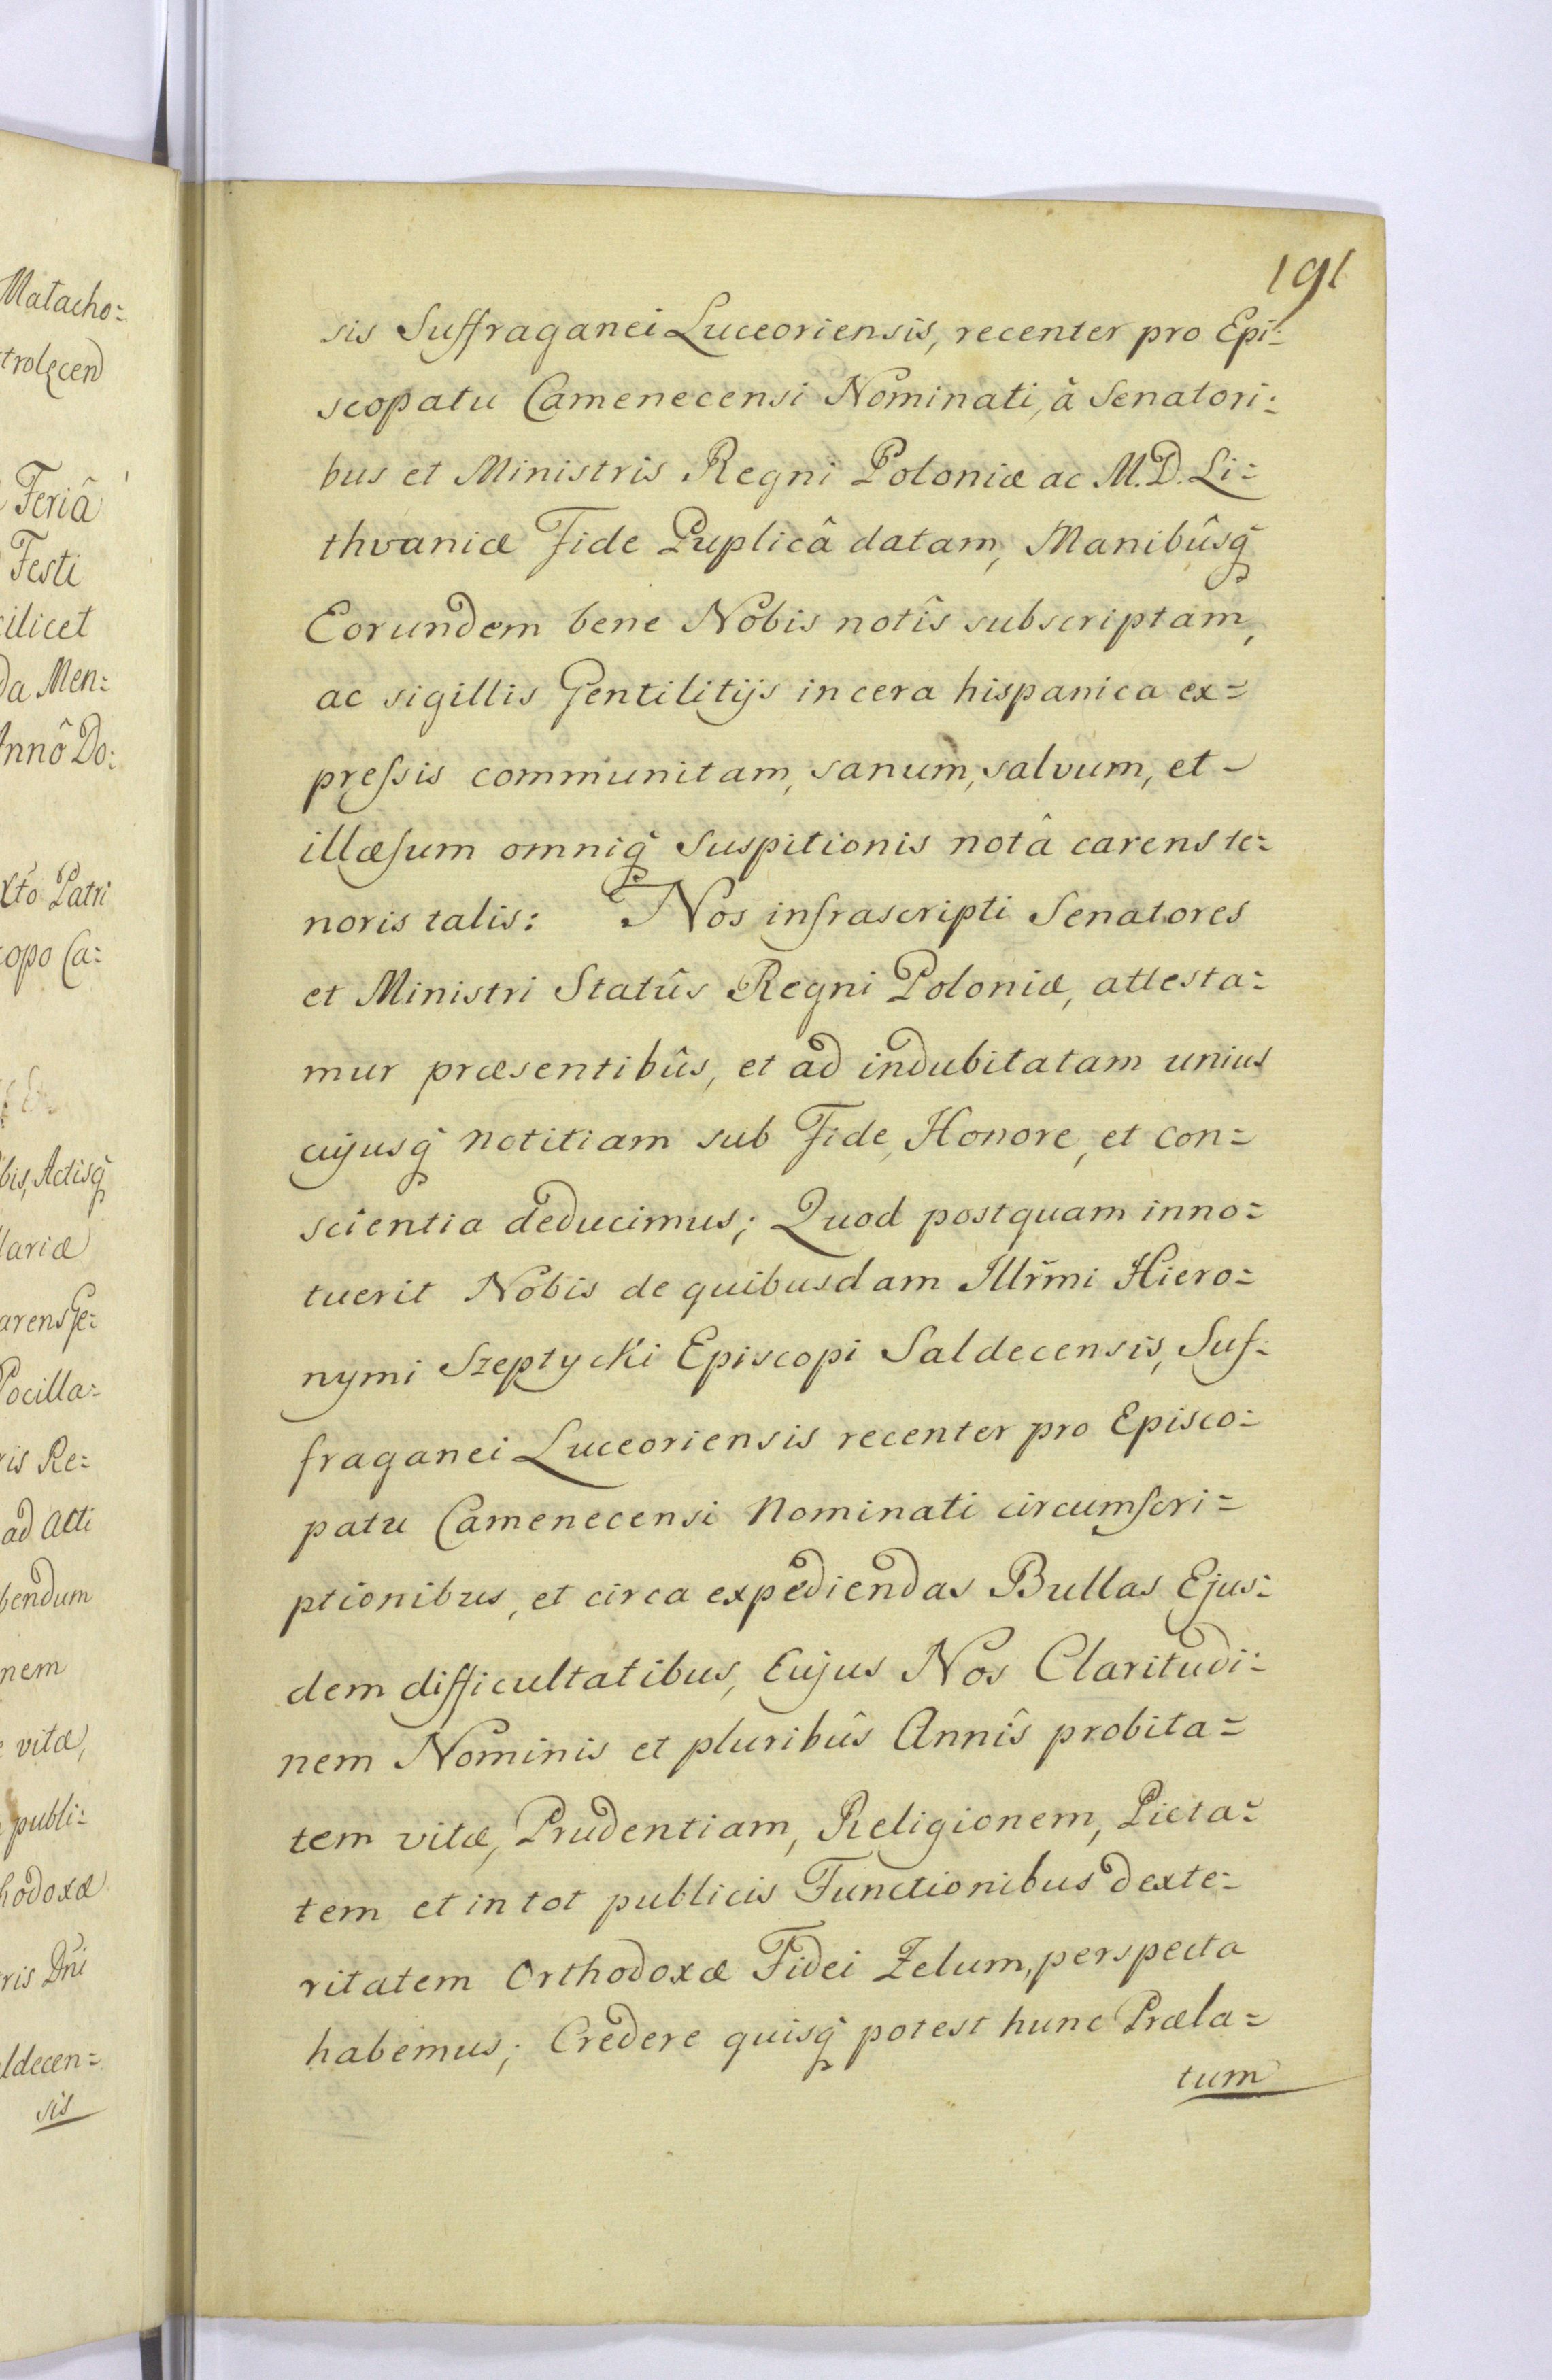 Matacho=
trolęcen
Feriâ
Festi
cilicet
da Men=
Annô Do:
xto Patri
copo Ca:
bis, Actisq̃
lariæ
arens Ge:
Pocilla=
ris Re:
ad Acti
bendum
nem
vitæ,
publi=
hodoxæ
ris Dñi
ldecen=
sis
191
sis Suffraganei Luceoriensis, recenter pro Epi=
scopatu Camenecensi Nominati, à Senatori=
bus et Ministris Regni Poloniæ ac M. D. Li=
thvaniæ Fide Puplicâ datam, Manibûsq̃
Eorundem bene Nobis notîs subscriptam,
ac sigillis Gentilitijs in cera hispanica ex=
pręssis communitam, sanum, salvum, et
illæsum omniq̃ suspitionis notâ carens te=
noris talis: Nos infrascripti Senatores
et Ministri Statûs Regni Poloniæ, attesta=
mur præsentibûs, et ad indubitatam unius
cujusq̃ notitiam sub Fide, Honore, et con=
scientia deducimus; Quod postquam inno=
tuerit Nobis de quibusdam Illr̃mi Hiero=
nymi Szeptycki Episcopi Saldecensis, Suf=
fraganei Luceoriensis recenter pro Episco=
patu Camenecensi Nominati circumscri=
ptionibus, et circa expediendas Bullas Ejus=
dem difficultatibus, Cujus Nos Claritudi=
nem Nominis et pluribûs Annîs probita=
tem vitæ, Prudentiam, Religionem, Pieta=
tem et in tot publicis Functionibus dexte=
ritatem Orthodoxæ Fidei Zelum, perspecta
habemus; Credere quisq̃ potest hunc Præla=
tum